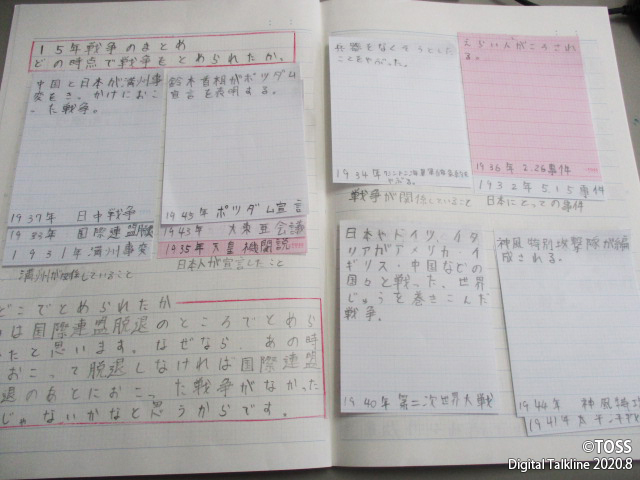 15年戦争のまとめ
どの時点で戦争をとめられたか。
中国と日本が満州事
変をき、かけにおこ
った戦争。
1937年 日中戦争
1933年 国際連盟脱
1931年 満州事変
満州が関係していること
鈴木首相がポツダム
宣言を表明する。
1945年 ポツダム宣言
1943年 大東亜会議
1935年 天皇機関説
日本人が宣言したこと
どこでとめられたか
は国際連盟脱退のところでとめら
たと思います。なぜなら、あの時
おこって脱退しなければ国際連盟
退のあとにおこった戦争がなかった
じゃないかなと思うからです。
兵器をなくそうとした
ことをやぶった。
1934年
やぶる。
戦争が関係していること
えらい人がころされ
る。
1936年 2.26事件
1932年 5.15事件
日本にとっての事件
日本やドイツ、イタ
リアがアメリカ、イ
ギリス、中国などの
国々と戦った、世界
じゅうを巻きこんだ
戦争。
1940年 第二次世界大戦
神風特別攻撃隊が編
成される。
1944年 神風
1941年
©TOSS
Digital Talkline 2020.8